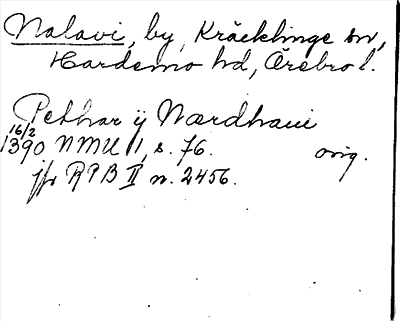 Nalavi, by, Kräcklinge sn,
Hardemo hd, Örebro l.
Pethar ÿ Nærdhaui
16/2
1390 NMU 1, s. 76. orig.
jfr RPB II n. 2456.